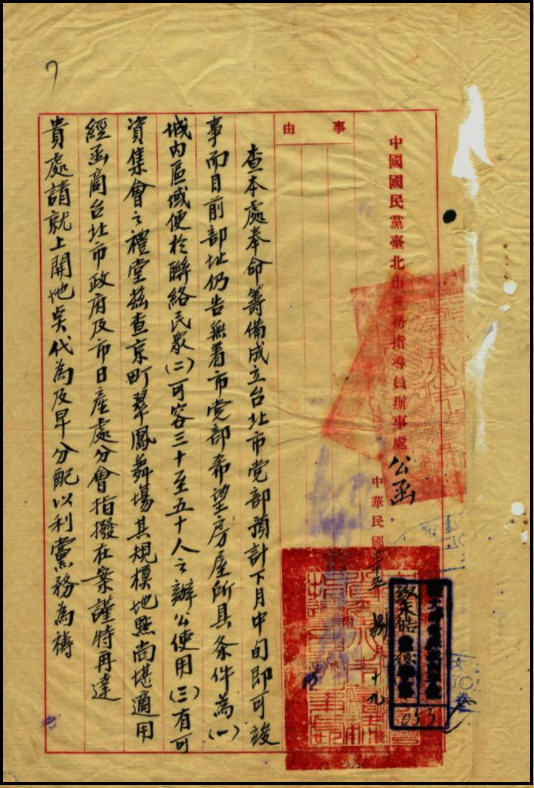 中國國民黨臺北市黨務指導員辦事處公函
中華民國
捌
十九
事由
查本處奉命籌備成立台北市党部預計下月中旬即可竣
事而目前部址仍告無着市党部希望房屋所具条件為(一)
城內區域便於聯絡民衆(二)可容三十至五十人之辦公使用(三)有可
資集會之禮堂茲查京町翠鳳舞場其規模地點尚堪適用
經函商台北市政府及市日產處分會指撥在案謹特再達
貴處請就上開地矣代為及早分配以利黨務為禱
053